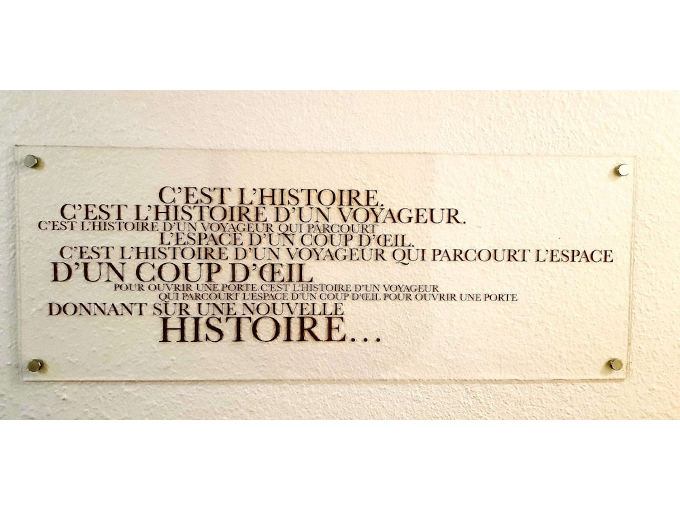 C'EST L'HISTOIRE.
C'EST L'HISTOIRE D'UN VOYAGEUR.
C'EST L'HISTOIRE D'UN VOYAGEUR QUI PARCOURT
L'ESPACE D'UN COUP D'ŒIL.
C'EST L'HISTOIRE D'UN VOYAGEUR QUI PARCOURT L'ESPACE
D'UN COUP D'ŒIL
POUR OUVRIR UNE PORTE. C'EST L'HISTOIRE D'UN VOYAGEUR
QUI PARCOURT L'ESPACE D'UN COUP D'ŒIL POUR OUVRIR UNE PORTE
DONNANT SUR UNE NOUVELLE
HISTOIRE...